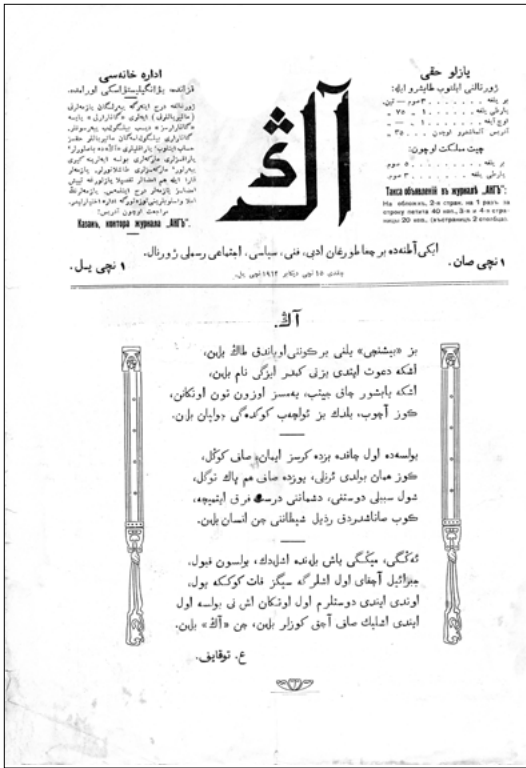 يازلو حقی
ژورنالنی ايلتوب طابشرو ايله:
بر يلغه . . . . . . ٣ صوم — تين.
يارطی يلغه . . . . ١ „ ٧٥ „
اوچ آيغه . . . . . ١ „ — „
آدرس آلماشدرو اوچون . . . ٣٥ „
چيت مملكت اوچون:
بر يلغه . . . . . . ٥ صوم
يارطی يلغه . . . . ٣ صوم.
Такса объявленій въ журналѣ „АНГЪ“:
На обложкѣ, 2-я стран. на 1 разъ за
строку петита 40 коп., 3-я и 4-я стра-
ницы 20 коп., (въ страницѣ 2 столбца).
آڭ
اداره خانه‌سی
مراجعت اوچون آدريس:
Казань, контора журнала „АНГЪ“.
ايكی آطنه‌ده بر چغا طورغان ادبی، فنی، سياسی، اجتماعی رسملی ژورنال.
١ نچی صان.
١ نچی يل.
١٥ نچی ديكابر ١٩١٢ نچی يل.
آڭ.
بز «بيشنچی» يلنی بر كوننی اوياندق طاڭ بلەن،
اشكه دعوت ايتدی بزنی كمدر ايزگی نام بلەن،
اشكه يابشور چاق جيتب، يمسز اوزون تون اوتكانن،
كوز آچوب، بلدك بز ئولچەب كوكدەگی جولپان بلەن.
بولسەده اول چاقده بزده كرسز ايمان، صافی كوڭل،
كوز همان بولدی ئرنلی، يوزده صافی هم پاك توگل،
شول سببلی دوستنی، دشماننی درست فرق ايتميچه،
كوب صاناشدردق رذيل شيطاننی چن انسان بلەن.
ئەڭگی، ميڭگی باش بلەنده اشلەدك، بولسون قبول،
جبرائيل آچقای اول اشلرگه سيگز قات كوككه يول،
اوتدی ايندی دوستلرم اول اوتكان اش نی بولسه اول
ايندی اشليك صافی آچق كوزلر بلەن، چن «آڭ» بلەن.
ع. توقايف.